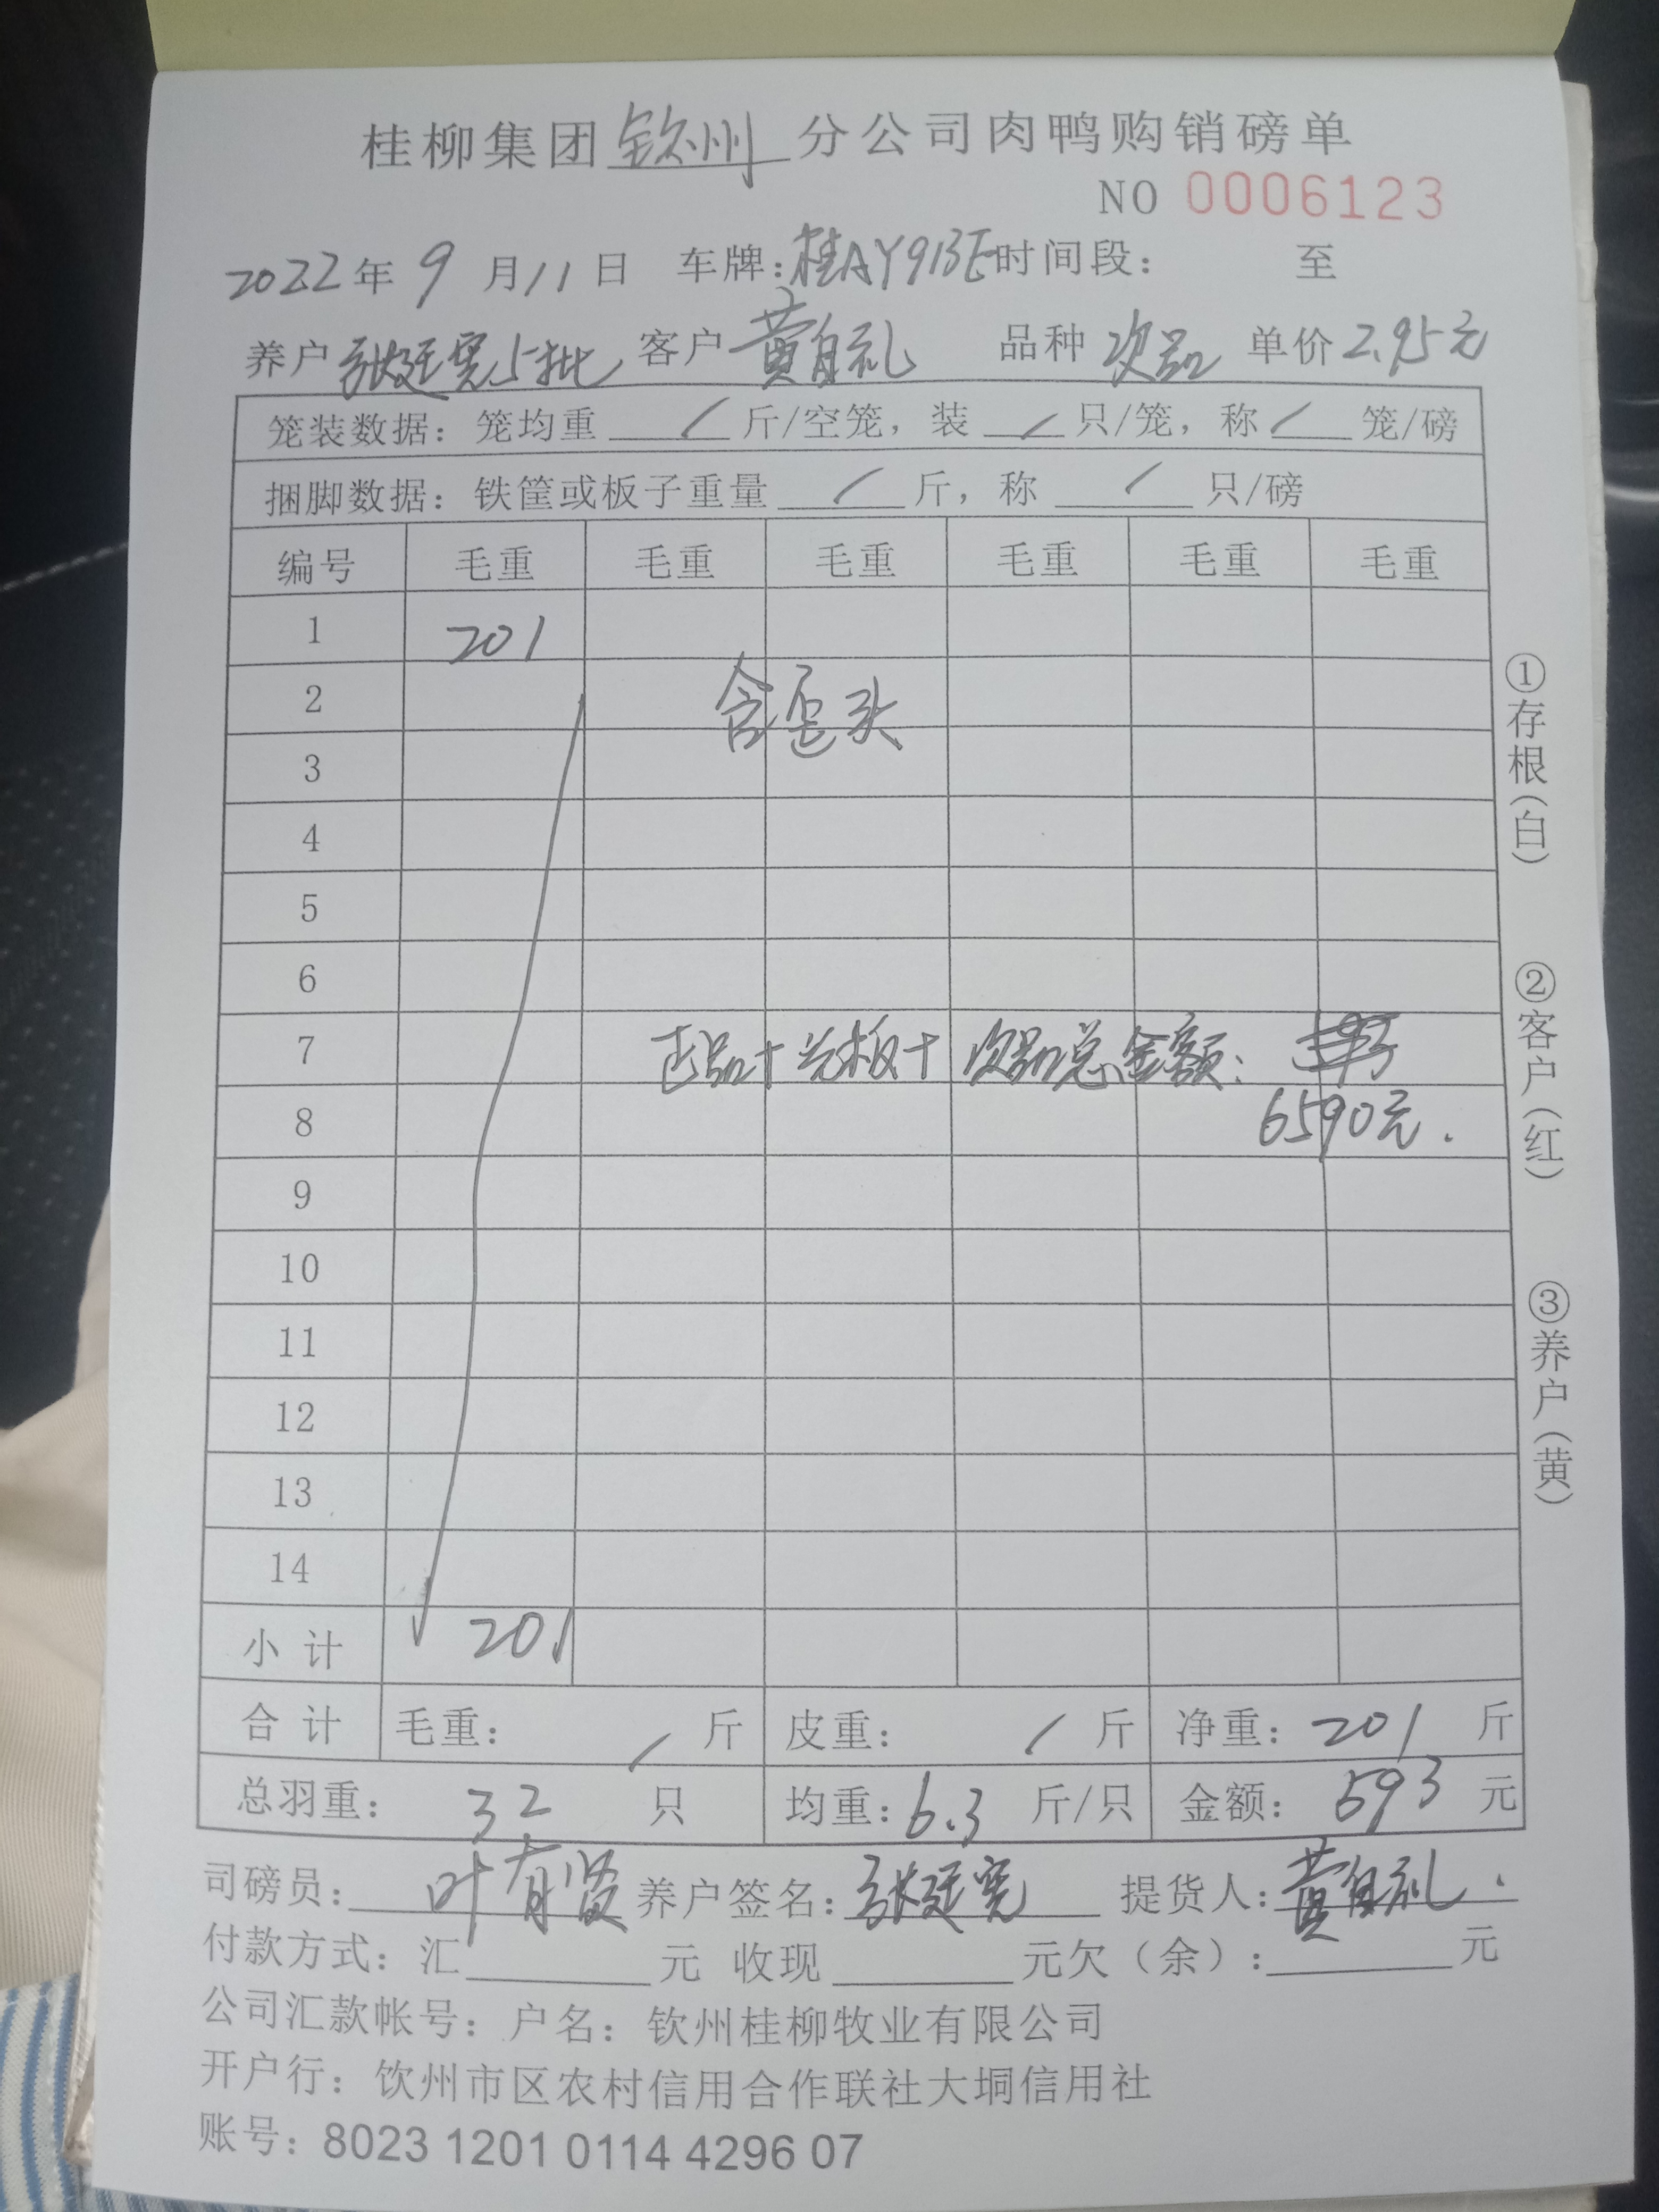 桂柳集团钦州分公司肉鸭购销磅单
NO 0006123
2022年9月11日 车牌:桂AY913E时间段: 至
养户张廷宪5批 客户黄自礼 品种次品 单价2.95元
笼装数据: 笼均重/斤/空笼, 装/只/笼, 称/笼/磅
捆脚数据: 铁筐或板子重量/斤, 称/只/磅
编号 毛重 毛重 毛重 毛重 毛重 毛重
1 201
2 含歪头
3
4
5
6
7 正品+光板+次品总金额:
8 6590元.
9
10
11
12
13
14
小计 201
合计 毛重: / 斤 皮重: / 斤 净重: 201 斤
总羽重: 32 只 均重: 6.3 斤/只 金额: 593 元
司磅员: 叶有贤 养户签名: 张廷宪 提货人: 黄自礼
付款方式: 汇 元 收现 元欠(余): 元
公司汇款帐号: 户名: 钦州桂柳牧业有限公司
开户行: 钦州市区农村信用合作联社大垌信用社
账号: 8023 1201 0114 4296 07
①存根(白)
②客户(红)
③养户(黄)